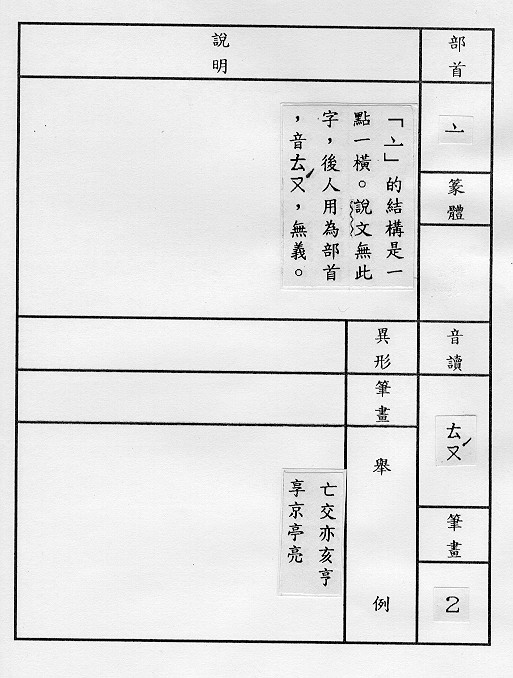 部首
亠
篆體
音讀
ㄊㄡˊ
筆畫
2
說明
「亠」的結構是一
點一橫。說文無此
字，後人用為部首
，音ㄊㄡˊ，無義。
異形
筆畫
舉例
亡交亦亥亨
享京亭亮